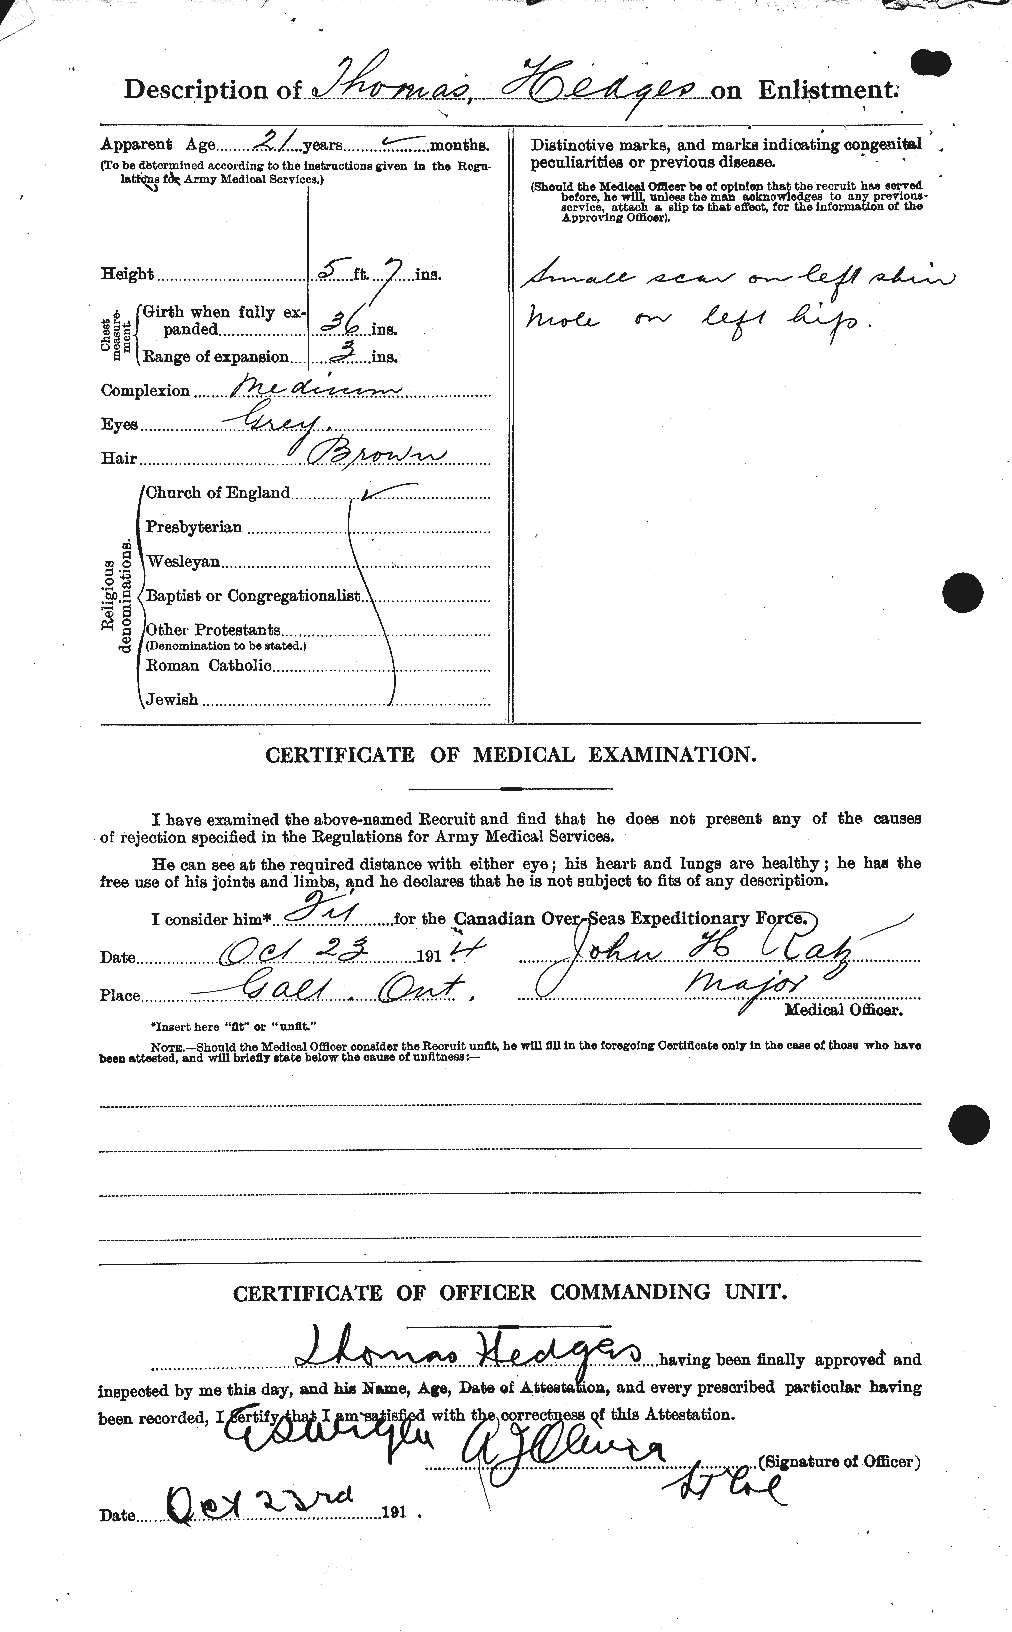 Description of Thomas, Hedges on Enlistment.
Apparent Age 21 years months.
(To be determined according to the instructions given in the Regu-
lations for Army Medical Services.)
Height 5 ft. 7 ins.
Chest measure-ment.
Girth when fully ex-
panded 36 ins.
Range of expansion 3 ins.
Complexion Medium
Eyes Grey.
Hair Brown
Religious denominations.
Church of England ✓
Presbyterian
Wesleyan
Baptist or Congregationalist
Other Protestants
(Denomination to be stated.)
Roman Catholic
Jewish
Distinctive marks, and marks indicating congenital
peculiarities or previous disease.
(Should the Medical Officer be of opinion that the recruit has served
before, he will, unless the man acknowledges to any previous
service, attach a slip to that effect, for the information of the
Approving Officer).
Small scar on left shin
Mole on left hip.
CERTIFICATE OF MEDICAL EXAMINATION.
I have examined the above-named Recruit and find that he does not present any of the causes
of rejection specified in the Regulations for Army Medical Services.
He can see at the required distance with either eye; his heart and lungs are healthy; he has the
free use of his joints and limbs, and he declares that he is not subject to fits of any description.
I consider him* Fit for the Canadian Over-Seas Expeditionary Force.
Date Oct 23 1914 John H Ratz
Place Galt. Ont. Major
Medical Officer.
*Insert here "fit" or "unfit."
NOTE.—Should the Medical Officer consider the Recruit unfit, he will fill in the foregoing Certificate only in the case of those who have
been attested, and will briefly state below the cause of unfitness:—
CERTIFICATE OF OFFICER COMMANDING UNIT.
Thomas Hedges having been finally approved and
inspected by me this day, and his Name, Age, Date of Attestation, and every prescribed particular having
been recorded, I certify that I am satisfied with the correctness of this Attestation.
(Signature of Officer)
Lt Col
Date Oct 23rd 191 .